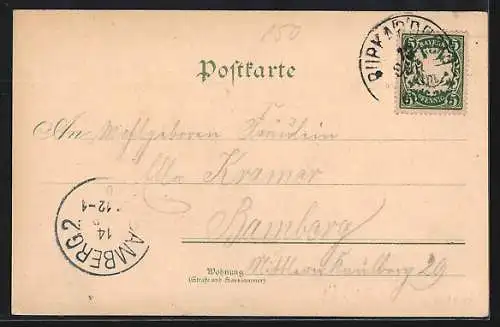 150
BURKARDR
BAYERN
5 5
5 PFENNIG 5
Postkarte
An Wohlgeboren Fräulein
Kramer
Bamberg
BAMBERG 2
14
12-1
Wohnung
(Straße und Hausnummer)
Mittlern Kaulberg 29